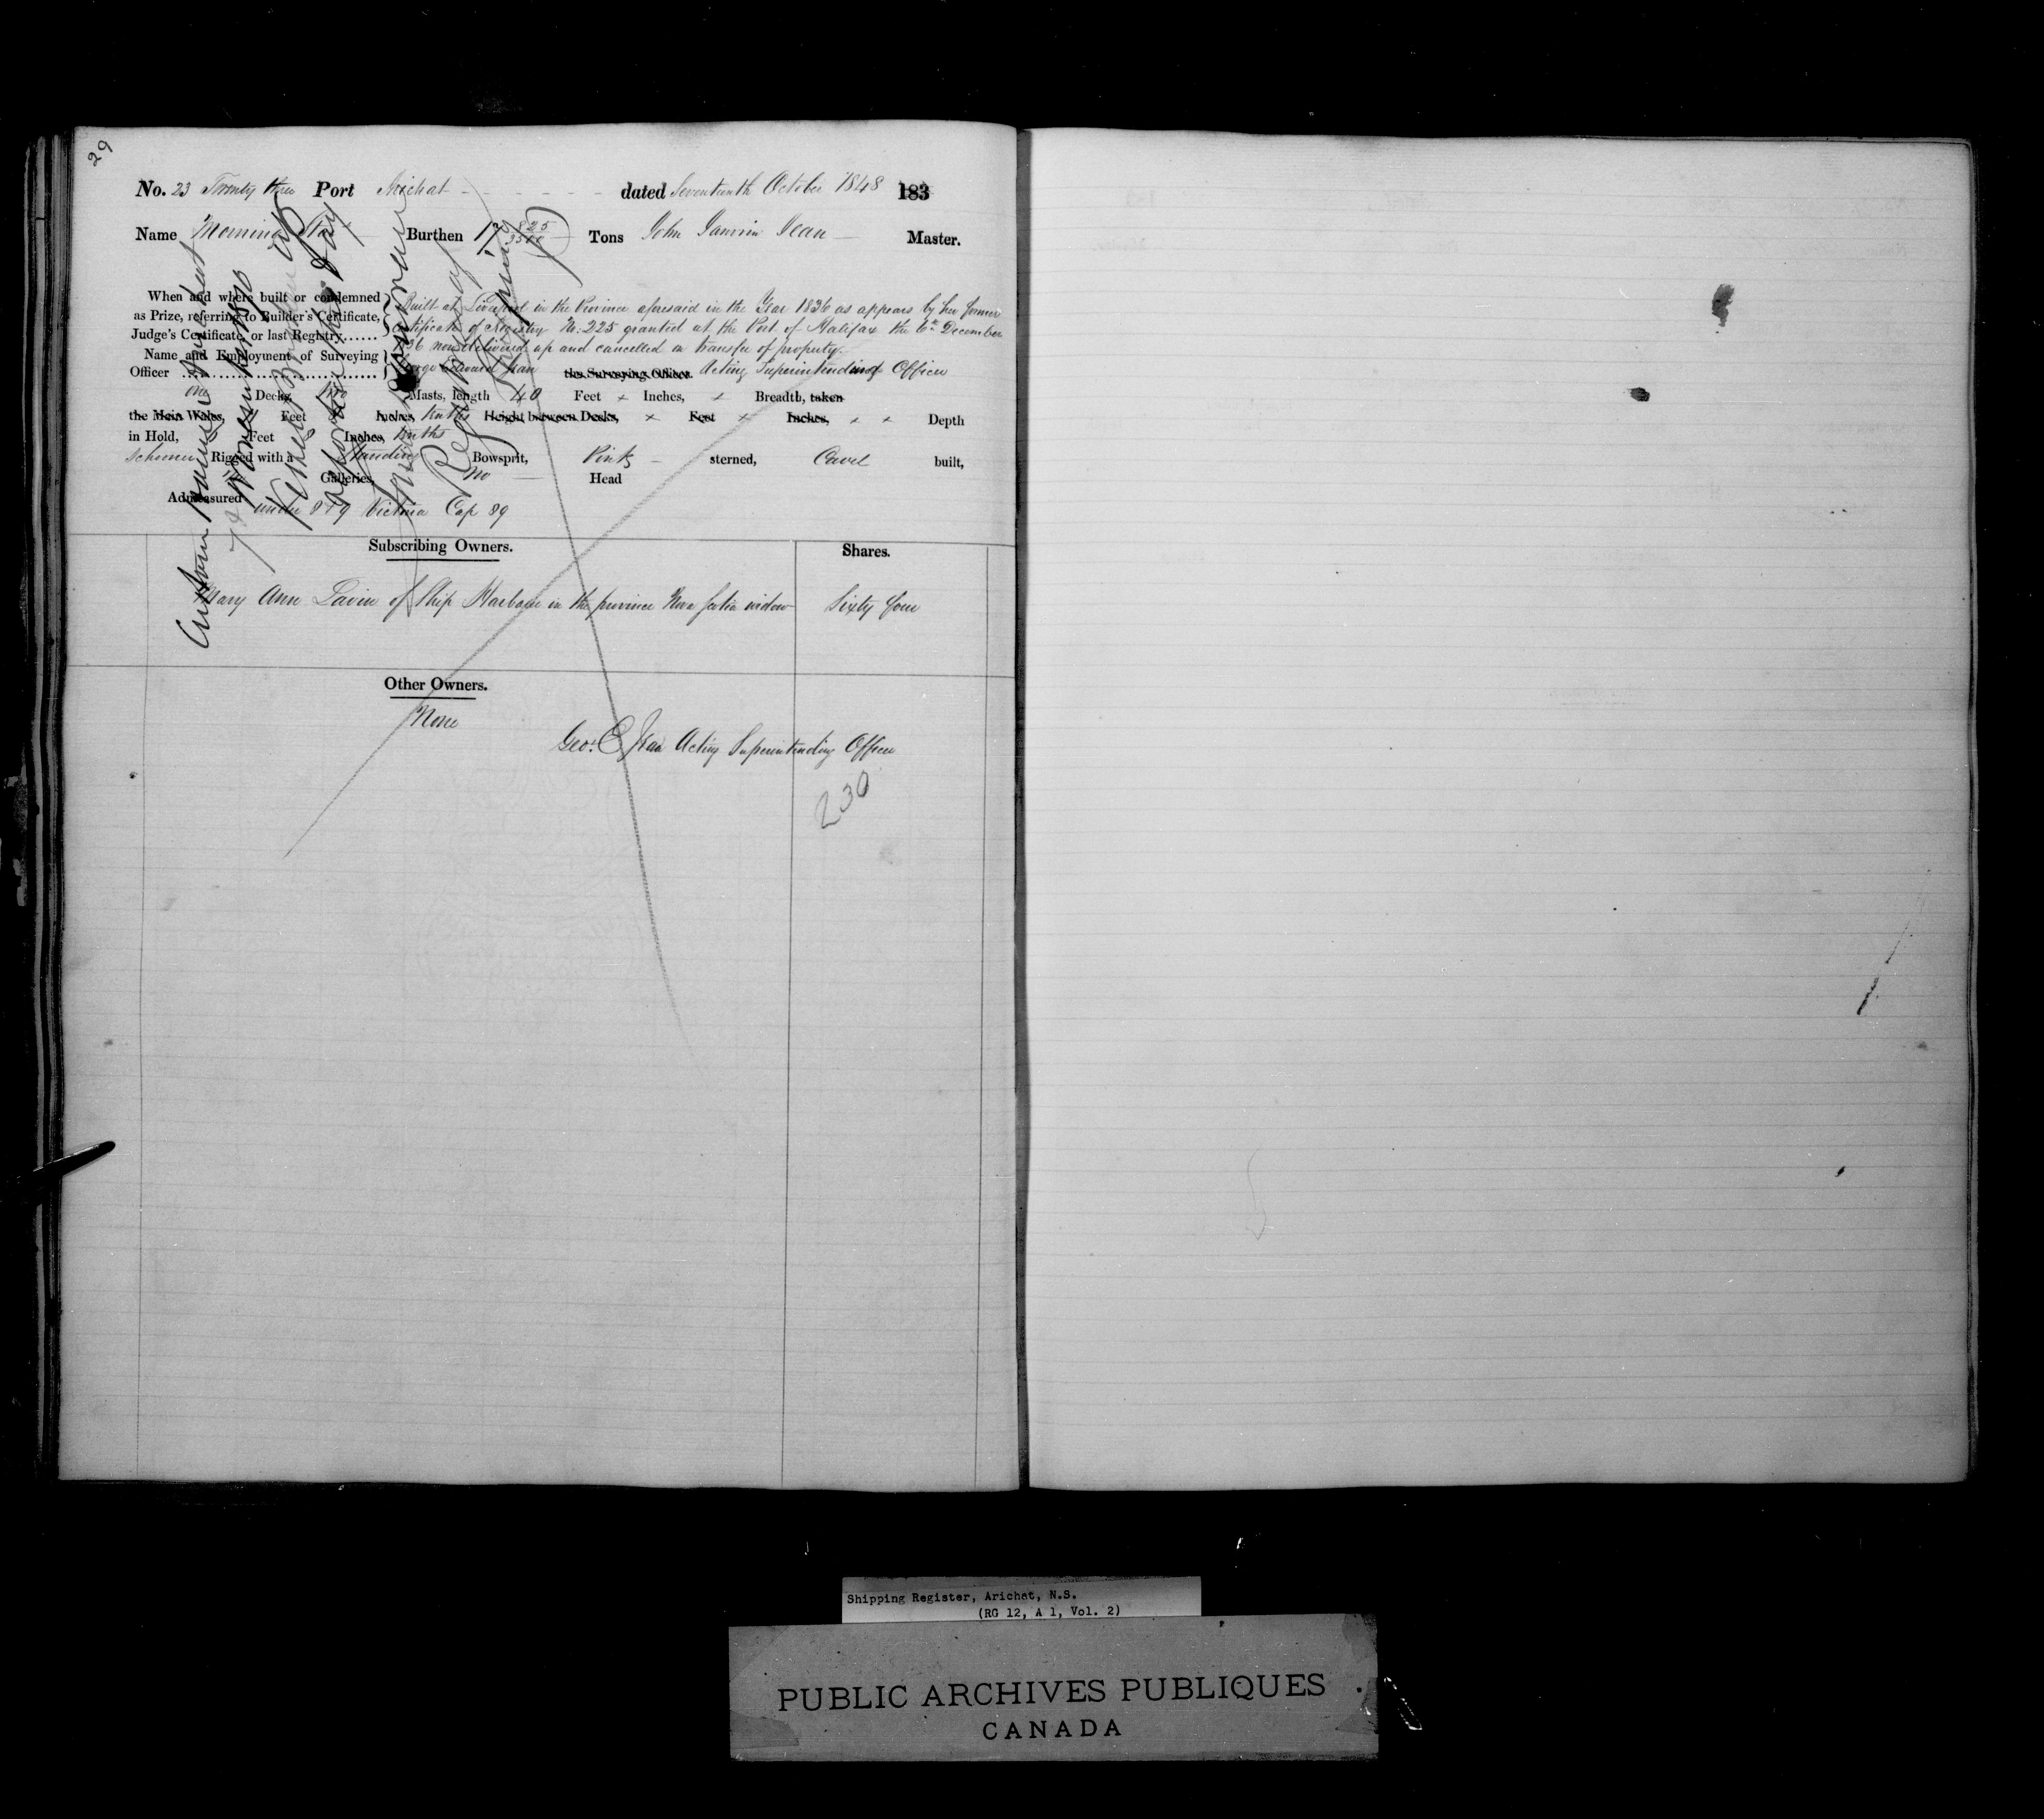 29
No. 23 Twenty three Port Arichat dated Seventeenth October 1848 183
Name Morning Star Burthen 17 825/3500 Tons John Janvrin Jean Master.
When and where built or condemned
as Prize, referring to Builder's Certificate,
Judge's Certificate, or last Registry......
Built at Liverpool in the Province aforesaid in the Year 1836 as appears by her former
Certificate of Registry No. 225 granted at the Port of Halifax the 6th December
36 now delivered up and cancelled on transfer of property.
Name and Employment of Surveying
Officer
George Edward Jean the Surveying Officer. Acting Superintending Officer
One Decks, Masts, length 40 Feet × Inches, × Breadth, taken
the Main Wales, 11 Feet Inches, tenths Height between Decks, × Feet × Inches, × × Depth
in Hold, Feet 8 Inches, tenths
Schooner Rigged with a Standing Bowsprit, Pink sterned, Carvel built,
Galleries, no Head
Admeasured under 8 & 9 Victoria Cap 89
Custom House Arichat
Vessel Broken up
Register of
Shipping
Subscribing Owners. Shares.
Mary Ann Lavin of Ship Harbour in the province Nova Scotia widow Sixty four
Other Owners.
None
Geo: E Jean Acting Superintending Officer
230
Shipping Register, Arichat, N.S.
(RG 12, A 1, Vol. 2)
PUBLIC ARCHIVES PUBLIQUES
CANADA